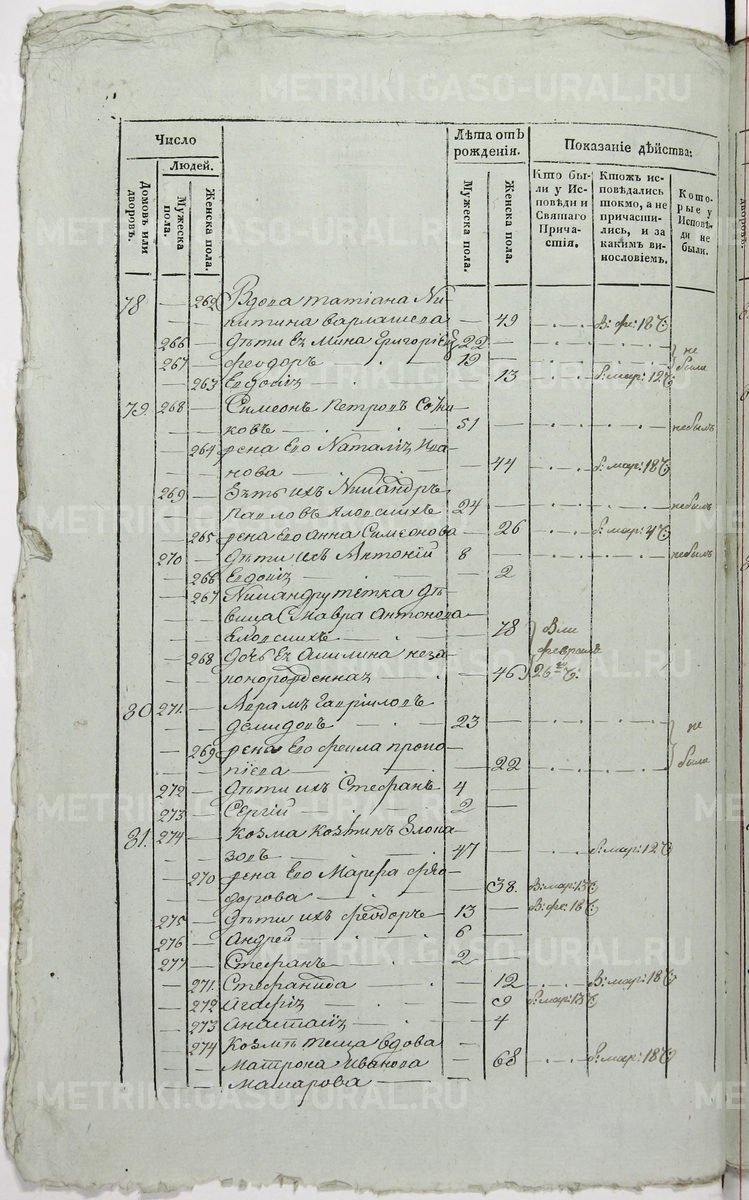 METRIKI.GASO-URAL.RU
Число
Людей.
Домовъ или дворовъ.
Мужеска пола.
Женска пола.
Лѣта отъ рожденія.
Мужеска пола.
Женска пола.
Показаніе дѣйства:
Кто бы-
ли у Ис-
повѣди и
Святаго
Прича-
стія.
Ктожъ ис-
повѣдались
токмо, а не
причасти-
лись, и за
какимъ ви-
нословіемъ.
Кото-
рые у
Исповѣ-
ди не
были.
78 — 262 Вдова татіана Ни-
китина варлашева — 49 В: фе: 18
266 — дѣти Ея Мина григоріевъ 22
267 — феодоръ 19 не были
— 263 Евдокія — 13 мар: 12
79. 268 — Симеонъ Петровъ
ковъ 51 небылъ
— 264 жена Его Наталія Ива
нова — 44 мар: 18
269 — Зять ихъ Никандръ
Павловъ 24 небылъ
— 265 жена Его Анна Симеонова — 26 мар: 4
270 — дѣти ихъ Антоній 8 небылъ
— 266 Евдокія — 2
— 267 Никандру тетка дѣ-
вица Мавра Антонова
— 78
— 268 дочь Ея Акилина неза
коннорожденная — 46 февраля 26
80 271 — Аврамъ Гавриловъ
демидовъ 23 не
— 269 жена Его фекла проко-
піева — 22 были
272 — дѣти ихъ Стефанъ 4 —
273 — Сергій 2 —
81. 274 — Козма
47 мар: 12
— 270 жена Его Марфа фео
дорова — 38. В: мар: 13
275 — дѣти ихъ феодоръ 13 — В: фе: 18
276 — Андрей 6 —
277 — Стефанъ 2 —
— 271. Стефанида 12 В: мар: 18
— 272 Агафія — 9 мар: 13
— 273 Анастасія — 4
— 274 Козмѣ теща вдова
Матрона Иванова — 68 мар: 18
Макарова